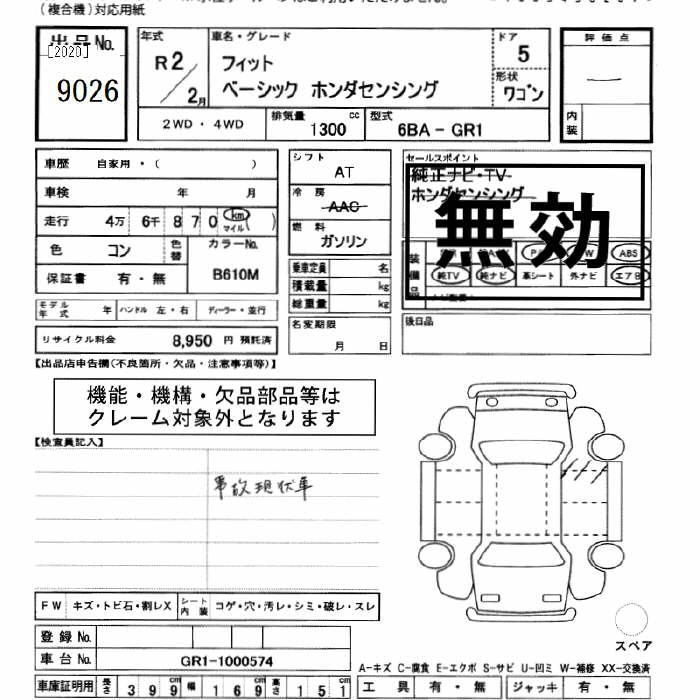 (複合機)対応用紙
出品No.
[2020]
9026
年式
R2/2月
車名・グレード
フィット
ベーシック ホンダセンシング
ドア
5
形状
ワゴン
評価点
内装
2WD・4WD
排気量
1300 cc
型式
6BA－GR1
車歴 自家用・( )
車検 年 月
走行 4万 6千 870 km マイル ( )
色 コン 色替
カラーNo.
B610M
保証書 有・無
モデル年式 年 ハンドル 左・右 ディーラー・並行
リサイクル料金 8,950 円 預託済
シフト
AT
冷房
AAC
燃料
ガソリン
乗車定員 名
積載量 kg
総重量 kg
名変期限
月 日
セールスポイント
純正ナビ・TV
ホンダセンシング
無効
装備品
ABS
純TV 純ナビ 革シート 外ナビ エアB
後日品
【出品店申告欄(不良箇所・欠品・注意事項等)】
機能・機構・欠品部品等は
クレーム対象外となります
【検査員記入】
事故現状車
FW キズ・トビ石・割レX シート内装 コゲ・穴・汚レ・シミ・破レ・スレ
登録No.
車台No. GR1-1000574
スペア
A-キズ C-腐食 E-エクボ S-サビ U-凹ミ W-補修 XX-交換済
車庫証明用 長さ 399 cm 幅 169 cm 高さ 151 cm
工具 有・無 ジャッキ 有・無